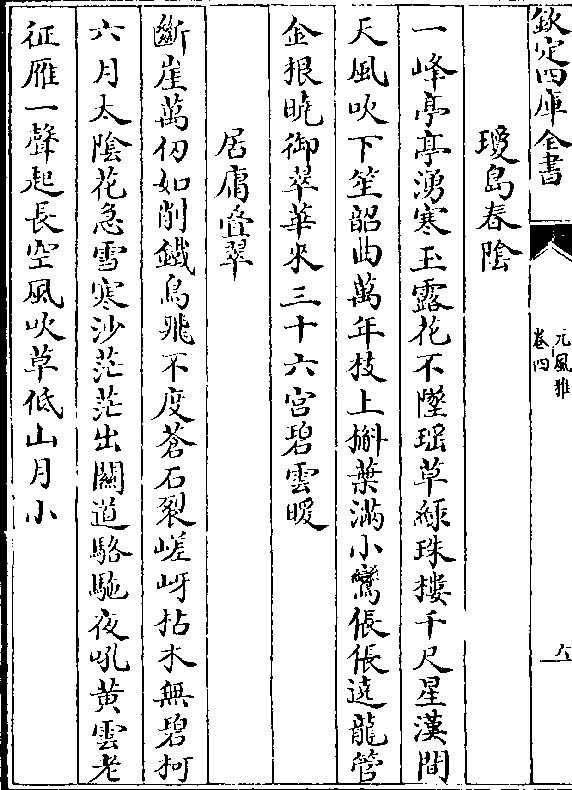 欽定四庫全書
元風雅
卷四
瓊島春陰
一峰亭亭湧寒玉露花不墜瑶草綠珠樓千尺星漢間
天風吹下笙韶曲萬年枝上槲葉滿小鸞倀倀遠龍管
金根曉御翠華來三十六宫碧雲暖
居庸疊翠
斷崖萬仞如削鐵鳥飛不度蒼石裂嵯岈枯木無碧柯
六月太陰花急雪寒沙茫茫出關道駱駞夜吼黄雲老
征雁一聲起長空風吹草低山月小